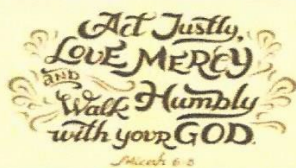 Act Justly,
LOVE MERCY
AND
Walk Humbly
with your GOD.
Micah 6:8